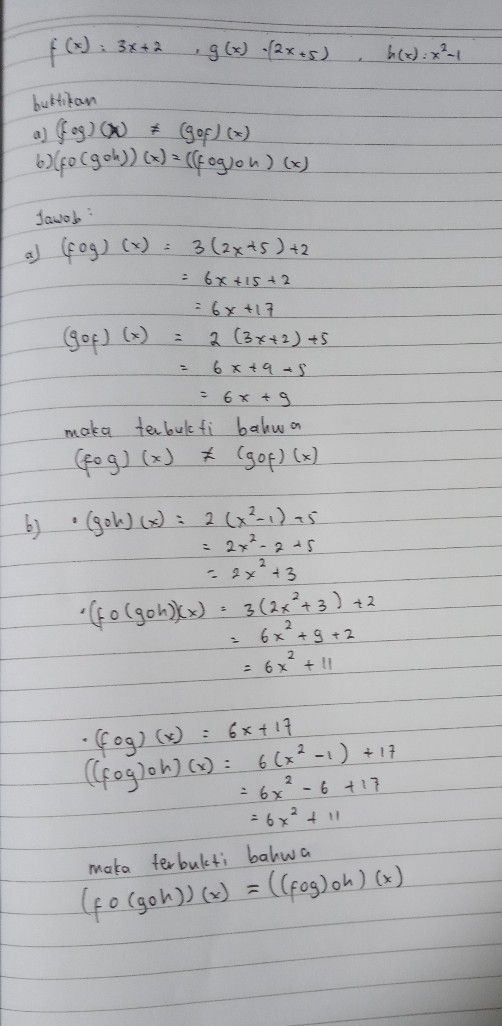 f(x) : 3x+2 , g(x) = (2x+5) , h(x) : x²-1
buktikan
a) (fog)(x) ≠ (gof)(x)
b) (fo(goh))(x) = ((fog)oh)(x)
Jawab :
a) (fog)(x) = 3(2x+5)+2
= 6x+15+2
= 6x+17
(gof)(x) = 2(3x+2)+5
= 6x+4+5
= 6x+9
maka terbukti bahwa
(fog)(x) ≠ (gof)(x)
b) • (goh)(x) = 2(x²-1)+5
= 2x²-2+5
= 2x²+3
• (fo(goh)(x) = 3(2x²+3)+2
= 6x²+9+2
= 6x²+11
• (fog)(x) = 6x+17
((fog)oh)(x) = 6(x²-1)+17
= 6x²-6+17
= 6x²+11
maka terbukti bahwa
(fo(goh))(x) = ((fog)oh)(x)